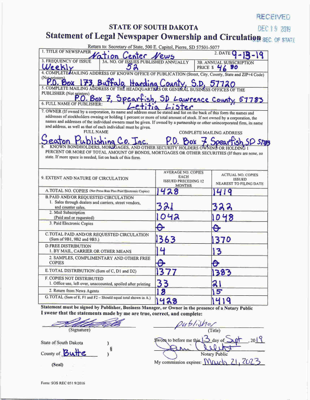 RECEIVED
DEC 19 2019
SEC OF STATE
STATE OF SOUTH DAKOTA
Statement of Legal Newspaper Ownership and Circulation
Return to: Secretary of State, 500 E. Capitol, Pierre, SD 57501-5077
1. TITLE OF NEWSPAPER Nation Center News
2. DATE 9-13-19
3. FREQUENCY OF ISSUE Weekly
3A. NO. OF ISSUES PUBLISHED ANNUALLY 52
3B. ANNUAL SUBSCRIPTION PRICE $ 42.80
4. COMPLETE MAILING ADDRESS OF KNOWN OFFICE OF PUBLICATION (Street, City, County, State and ZIP+4 Code)
P.O. Box 173, Buffalo, Harding County, SD, 57720
5. COMPLETE MAILING ADDRESS OF THE HEADQUARTERS OR GENERAL BUSINESS OFFICES OF THE PUBLISHER (Not printer)
P.O. Box 7, Spearfish, SD Lawrence County, 57783
6. FULL NAME OF PUBLISHER:
Letitia Lister
7. OWNER (If owned by a corporation, its name and address must be stated and list on the back of this form the names and
addresses of stockholders owning or holding 1 percent or more of total amount of stock. If not owned by a corporation, the
names and addresses of the individual owners must be given. If owned by a partnership or other unincorporated firm, its name
and address, as well as that of each individual must be given.
FULL NAME COMPLETE MAILING ADDRESS
Seaton Publishing Co. Inc. P.O. Box 7 Spearfish, SD 57783
8. KNOWN BONDHOLDERS, MORTGAGES, AND OTHER SECURITY HOLDERS OWNING OR HOLDING 1
PERCENT OR MORE OF TOTAL AMOUNT OF BONDS, MORTGAGES OR OTHER SECURITIES (If there are none, so
state. If more space is needed, list on back of this form.
9. EXTENT AND NATURE OF CIRCULATION
AVERAGE NO. COPIES EACH ISSUED PRECEDING 12 MONTHS
ACTUAL NO. COPIES ISSUED NEAREST TO FILING DATE
A. TOTAL NO. COPIES (Net Press Run Plus Paid Electronic Copies) 1428 1419
B. PAID AND/OR REQUESTED CIRCULATION
1. Sales through dealers and carriers, street vendors, and counter sales. 321 322
2. Mail Subscription (Paid and or requested) 1042 1048
3. Paid Electronic Copies 0 0
C. TOTAL PAID AND/OR REQUESTED CIRCULATION (Sum of 9B1, 9B2 and 9B3.) 1363 1370
D. FREE DISTRIBUTION
1. BY MAIL, CARRIER OR OTHER MEANS 14 13
2. SAMPLES, COMPLIMENTARY AND OTHER FREE COPIES 0 0
E. TOTAL DISTRIBUTION (Sum of C, D1 and D2) 1377 1383
F. COPIES NOT DISTRIBUTED
1. Office use, left over, unaccounted, spoiled after printing 33 21
2. Return from News Agents 18 15
G. TOTAL (Sum of E, F1 and F2 - Should equal total shown in A.) 1428 1419
Statement must be signed by Publisher, Business Manager, or Owner in the presence of a Notary Public
I swear that the statements made by me are true, correct, and complete:
publisher
(Signature) (Title)
State of South Dakota )
§
County of Butte )
Sworn to before me this 13 day of Sept 2019
Notary Public
(Seal)
My commission expires: March 21, 2023
Form: SOS REC 051 9/2016